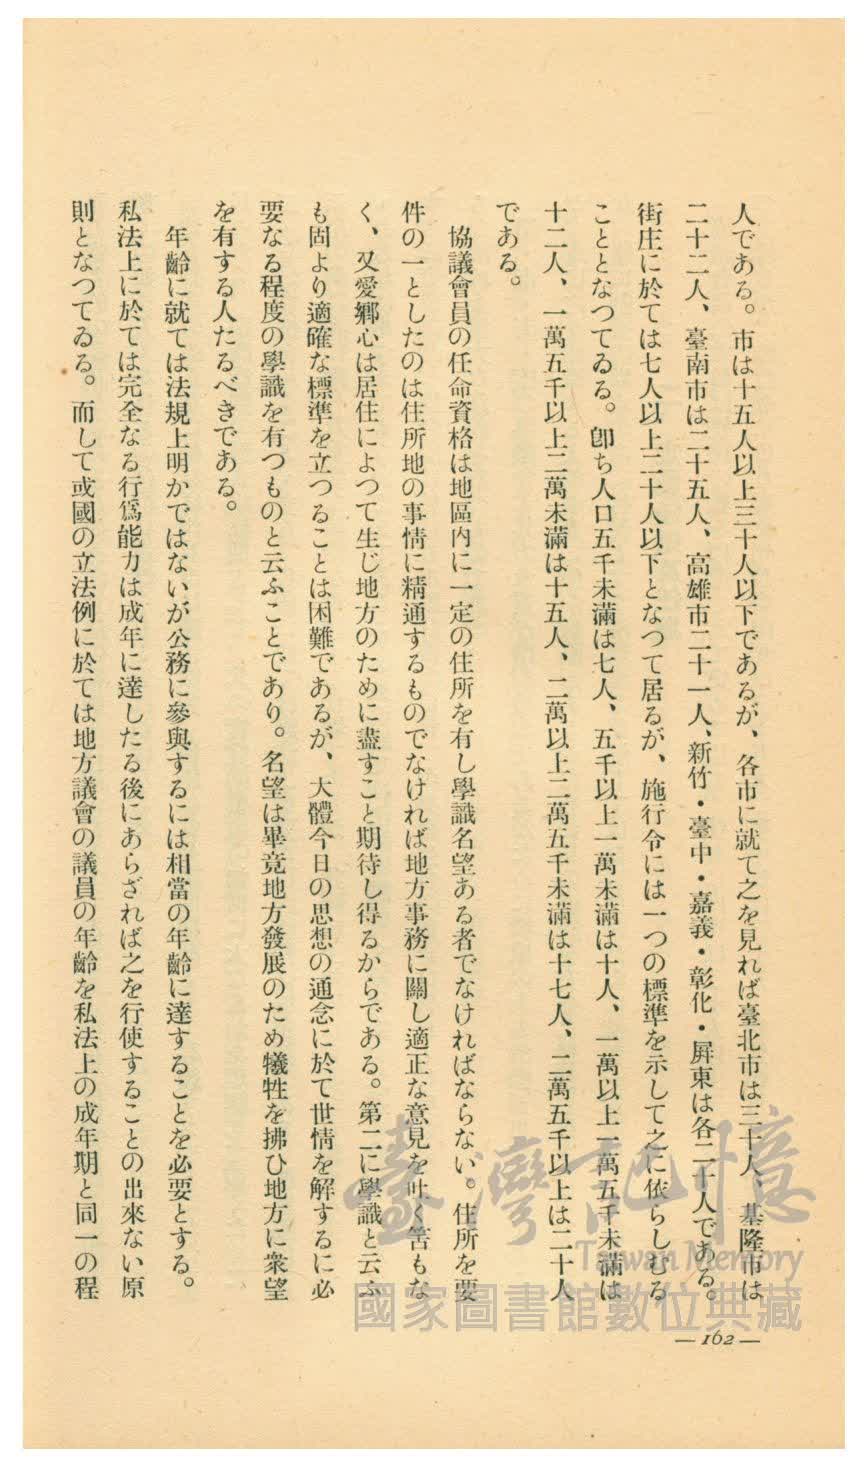 人である。市は十五人以上三十人以下であるが、各市に就て之を見れば臺北市は三十人、基隆市は
二十二人、臺南市は二十五人、高雄市二十一人、新竹・臺中・嘉義・彰化・屏東は各二十人である。
街庄に於ては七人以上二十人以下となつて居るが、施行令には一つの標準を示して之に依らしむる
こととなつてゐる。卽ち人口五千未滿は七人、五千以上一萬未滿は十人、一萬以上一萬五千未滿は
十二人、一萬五千以上二萬未滿は十五人、二萬以上二萬五千未滿は十七人、二萬五千以上は二十人
である。
協議會員の任命資格は地區內に一定の住所を有し學識名望ある者でなければならない。住所を要
件の一としたのは住所地の事情に精通するものでなければ地方事務に關し適正な意見を吐く筈もな
く、又愛鄕心は居住によつて生じ地方のために盡すこと期待し得るからである。第二に學識と云ふ
も固より適確な標準を立つることは困難であるが、大體今日の思想の通念に於て世情を解するに必
要なる程度の學識を有つものと云ふことであり。名望は畢竟地方發展のため犧牲を拂ひ地方に衆望
を有する人たるべきである。
年齡に就ては法規上明かではないが公務に參與するには相當の年齡に達することを必要とする。
私法上に於ては完全なる行爲能力は成年に達したる後にあらざれば之を行使することの出來ない原
則となつてゐる。而して或國の立法例に於ては地方議會の議員の年齡を私法上の成年期と同一の程
臺灣記憶
Taiwan Memory
國家圖書館數位典藏
— 162 —